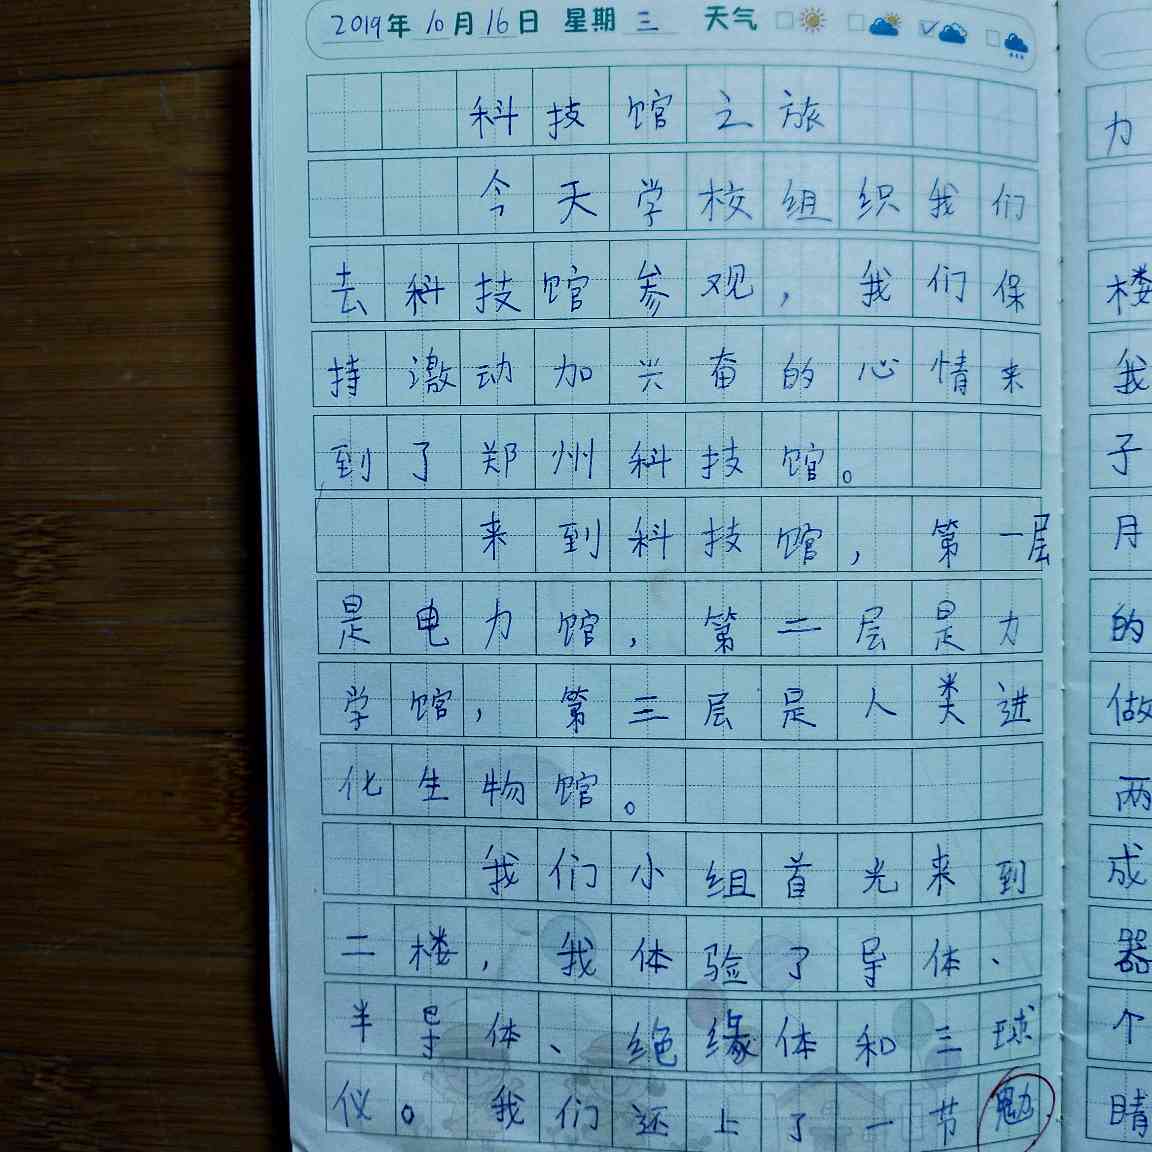 2019年10月16日 星期三 天气
科技馆之旅
今天学校组织我们
去科技馆参观，我们保
持激动加兴奋的心情来
到了郑州科技馆。
来到科技馆，第一层
是电力馆，第二层是力
学馆，第三层是人类进
化生物馆。
我们小组首先来到
二楼，我体验了导体、
半导体、绝缘体和三球
仪。我们还上了一节勉
力
楼
我
子
月
的
做
两
成
器
个
睛